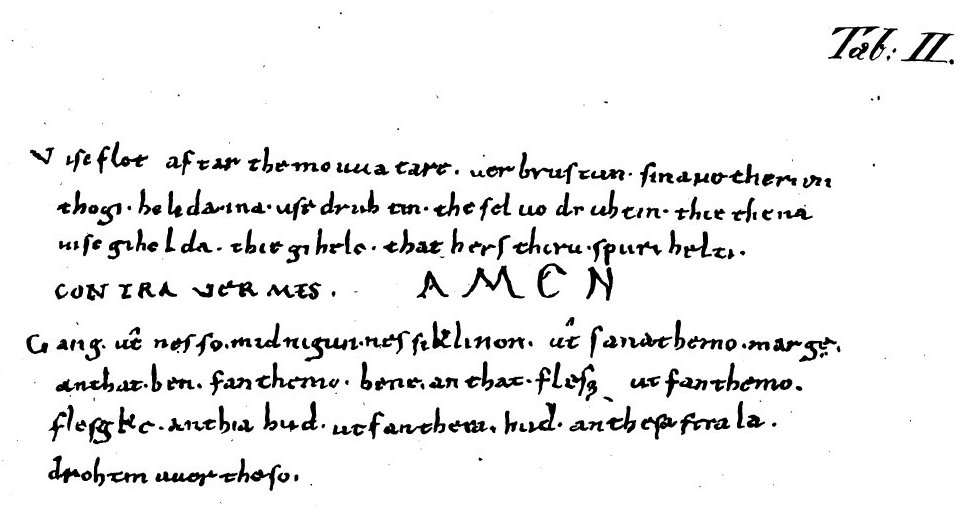 Tab: II.
Visc flot aftar themo uuatare. verbrustun. sina uetherun
tho gi. helida. ina. use druhtin. the seluo druhtin. thie thena
uisc gihelda. thie gihele. that hers theru. spurihelti.
CONTRA VERMES. AMEN
Gang. ût nesso. mid nigun. nessiklinon. ût fana themo. marge.
an that. ben. fan themo. bene. an that. flesg ut fan themo.
flesgke. an thia hud. ut fan thera. hud. an thesa strala.
drohtin uuerthe so.